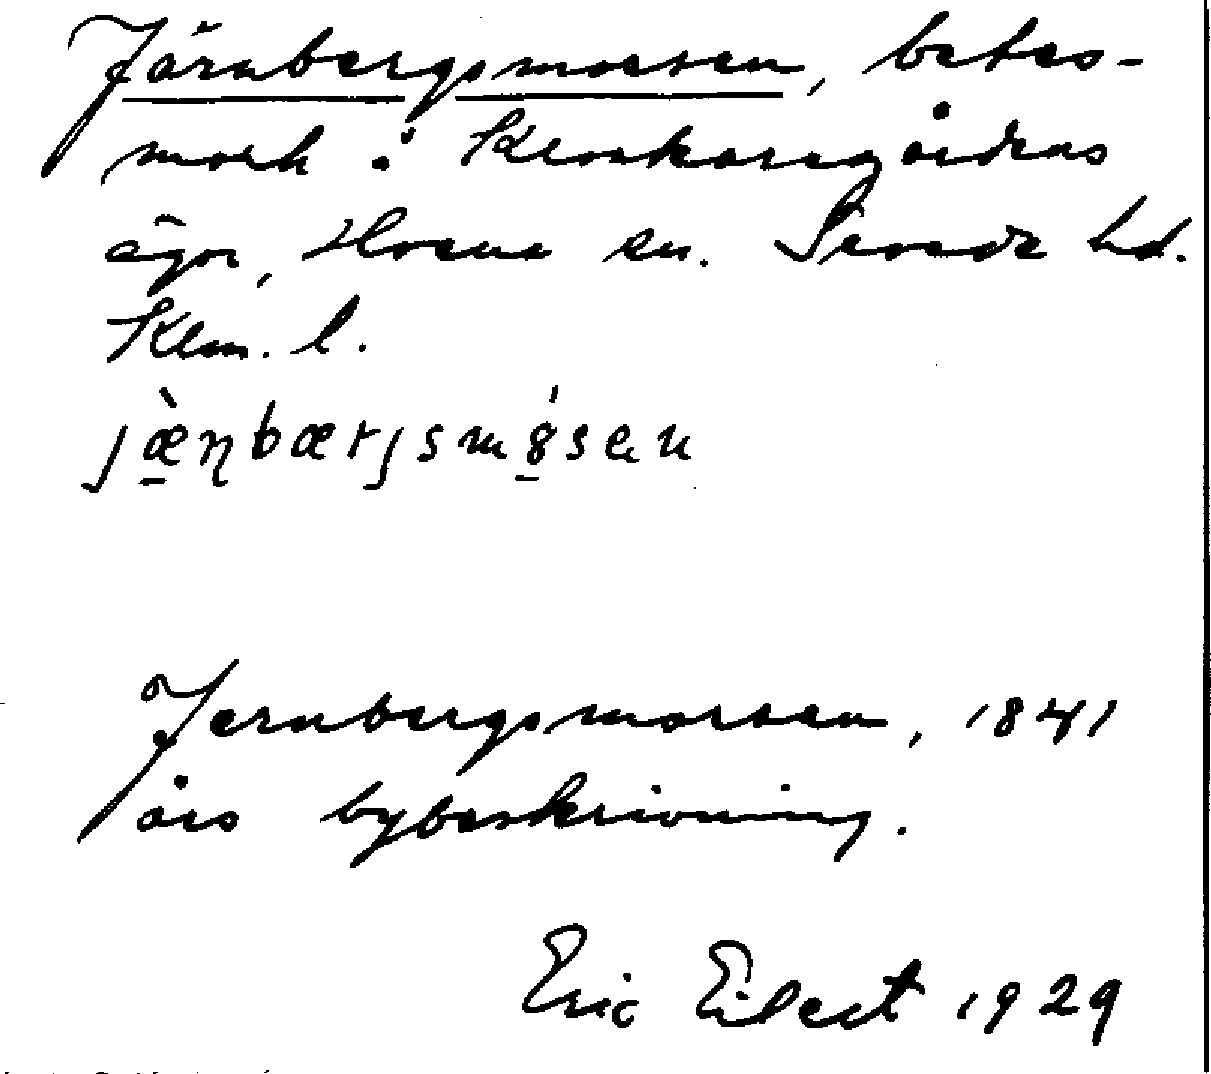 Järnbergsmossen, betes-
mark i Klockaregårdens
ägor, Hvena sn. Sevede hd.
Klm. l.
jæ̀ɳbærjsm8́sen
Jernbergsmossen, 1841
års bybeskrivning.
Eric Eilert 1929